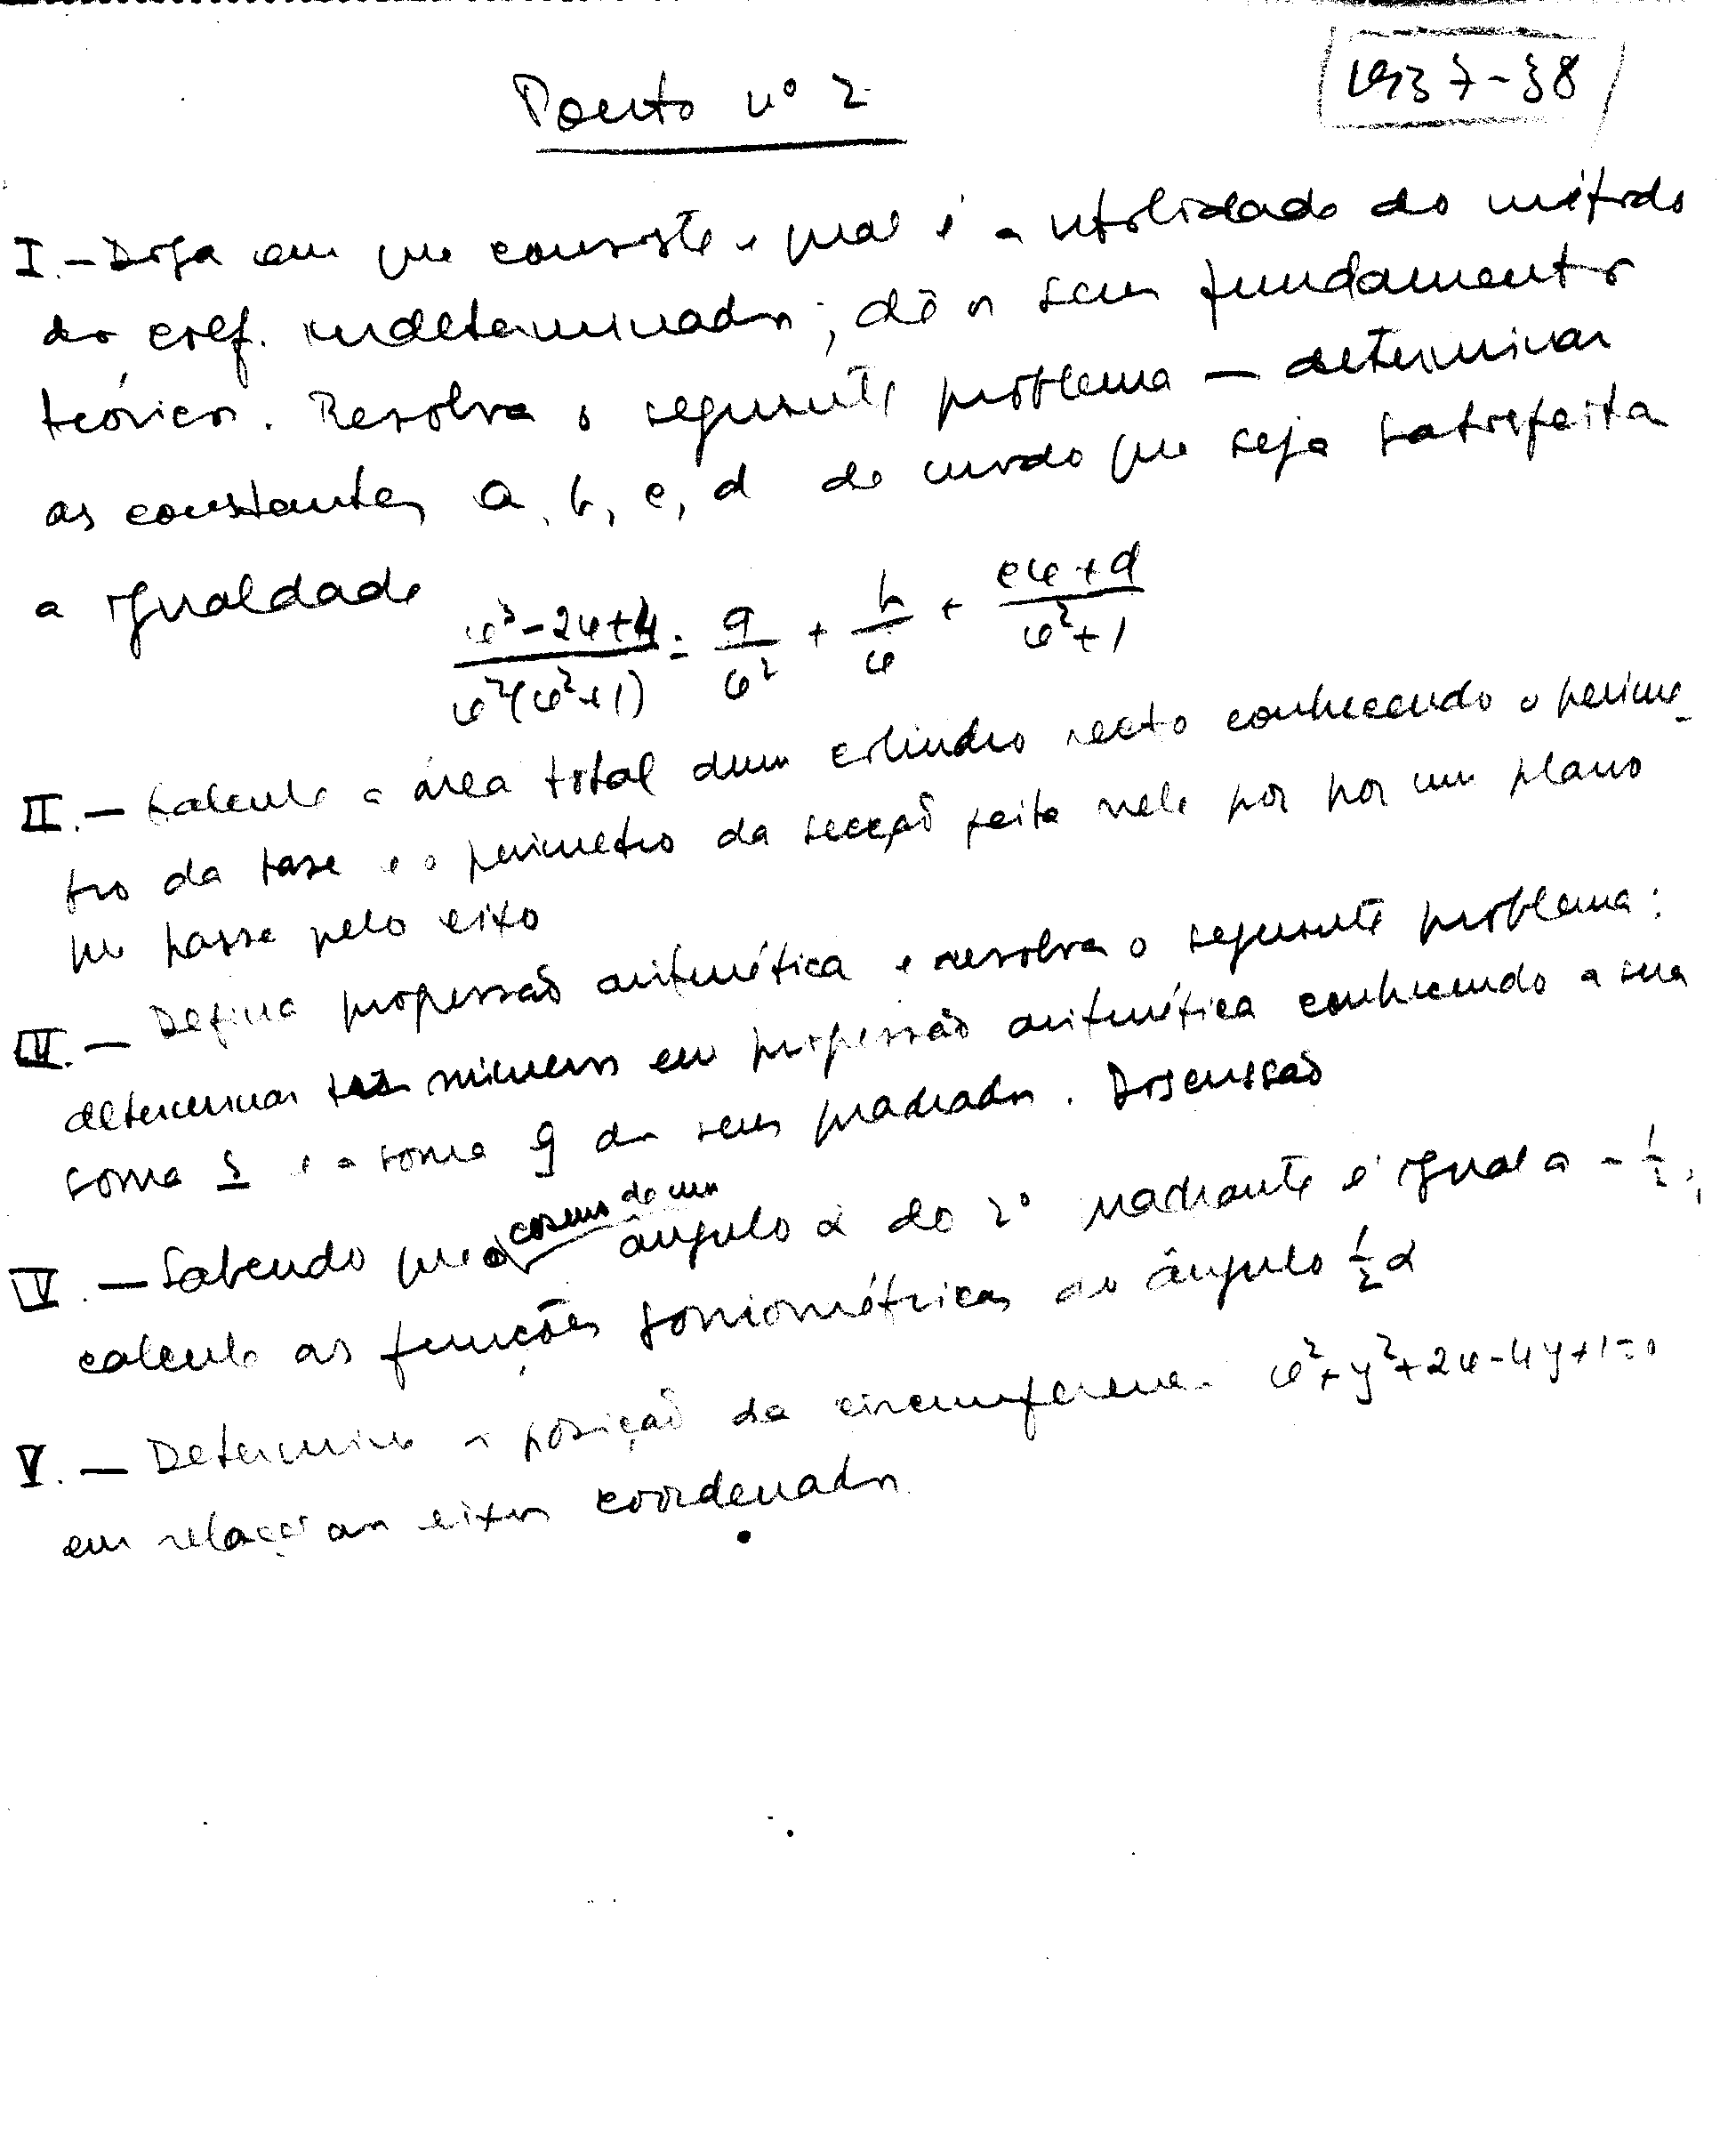 Ponto nº 2
1937-38
I. - Diga em que consiste e qual é a utilidade do método
dos coef. indeterminados; dê o seu fundamento
teórico. Resolva o seguinte problema - determinar
as constantes a, b, c, d de modo que seja satisfeita
a igualdade (x³-2x+4)/(x²(x²+1)) = a/x² + b/x + (cx+d)/(x²+1)
II. - Calcule a área total dum cilindro recto conhecendo o períme-
tro da base e o perímetro da secção feita nele por por um plano
que passe pelo eixo
III. - Defina progressão aritmética e resolva o seguinte problema:
determinar três números em progressão aritmética conhecendo a sua
soma s e a soma q dos seus quadrados. Discussão
IV. - Sabendo que o coseno de um ângulo α do 2º quadrante é igual a -1/2,
calcule as funções goniométricas do ângulo 1/2 α
V. - Determine a posição da circunferencia x²+y²+2x-4y+1=0
em relação aos eixos coordenados